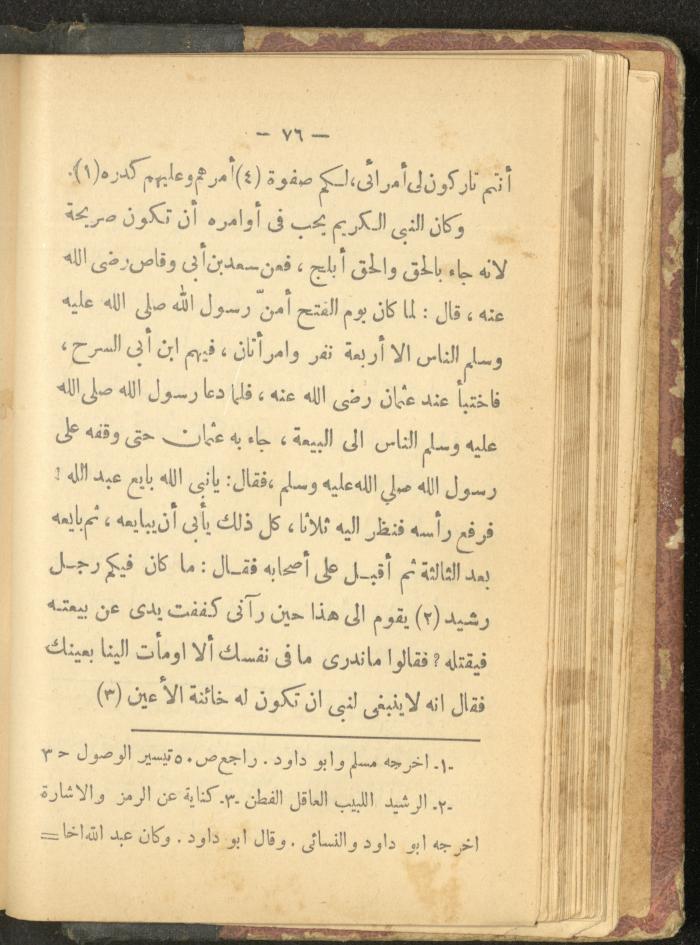 — ٧٦ —
أنتم تاركون لى أمرائى، لـكم صفوة (٤) أمرهم وعليهم كدره (١).
وكان النبى الـكريم يحب فى أوامره أن تـكون صريحة
لانه جاء بالحق والحق أبلج ، فعن سعد بن أبى وقاص رضى الله
عنه ، قال : لما كان يوم الفتح أمنّ رسول الله صلى الله عليه
وسلم الناس الا أربعة نفر وامرأتان ، فيهم ابن أبى السرح ،
فاختبأ عند عثمان رضى الله عنه ، فلما دعا رسول الله صلى الله
عليه وسلم الناس الى البيعة ، جاء به عثمان حتى وقفه على
رسول الله صلي الله عليه وسلم ،فقال: يانبى الله بايع عبد الله ؟
فرفع رأسه فنظر اليه ثلاثا ، كل ذلك يأبى أن يبايعه ، ثم بايعه
بعد الثالثة ثم أقبـل على أصحابه فقـال : ما كان فيكم رجـل
رشيد (٢) يقوم الى هذا حين رآنى كـففت يدى عن بيعتـه
فيقتله ؟ فقالوا ماندرى ما فى نفسك ألا اومأت الينا بعينك
فقال انه لاينبغى لنبى ان تكون له خائنة الأعين (٣)
-١- اخرجه مسلم وابو داود . راجع ص ٥٠ تيسير الوصول ح ٣
-٢- الرشيد اللبيب العاقل الفطن -٣- كناية عن الرمز والاشارة
اخرجه ابو داود والنسائى . وقال ابو داود . وكان عبد الله اخا =